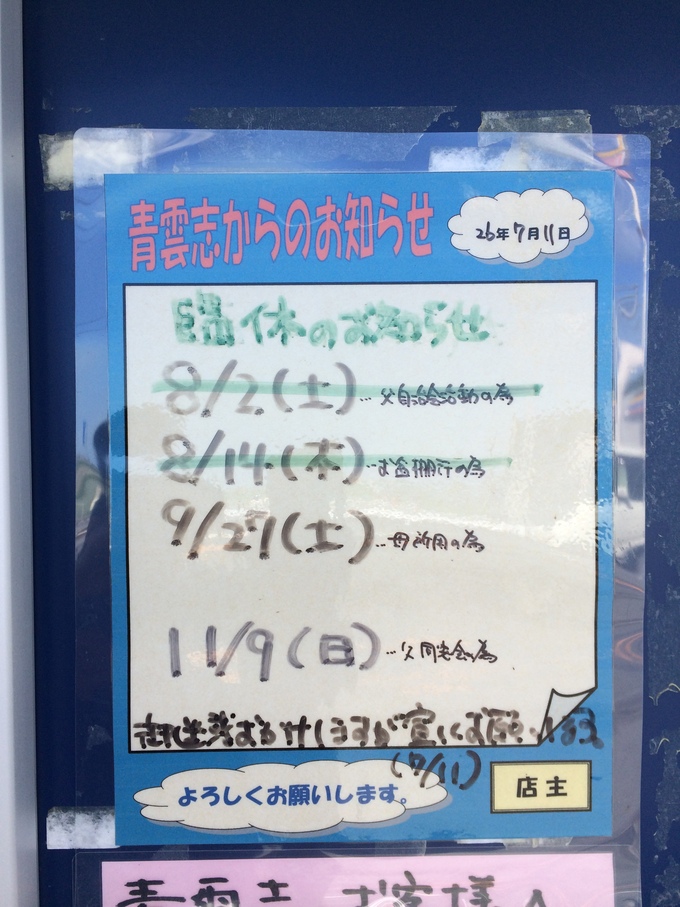 青雲志からのお知らせ
26年7月11日
臨休のお知らせ
8/2(土)…父自治会活動の為
8/14(木)…お盆棚行の為
9/27(土)…母所用の為
11/9(日)…父同窓会為
御迷惑おかけしますが宜しくお願い
(7/11)
よろしくお願いします。
店主
青雲志 お客様へ